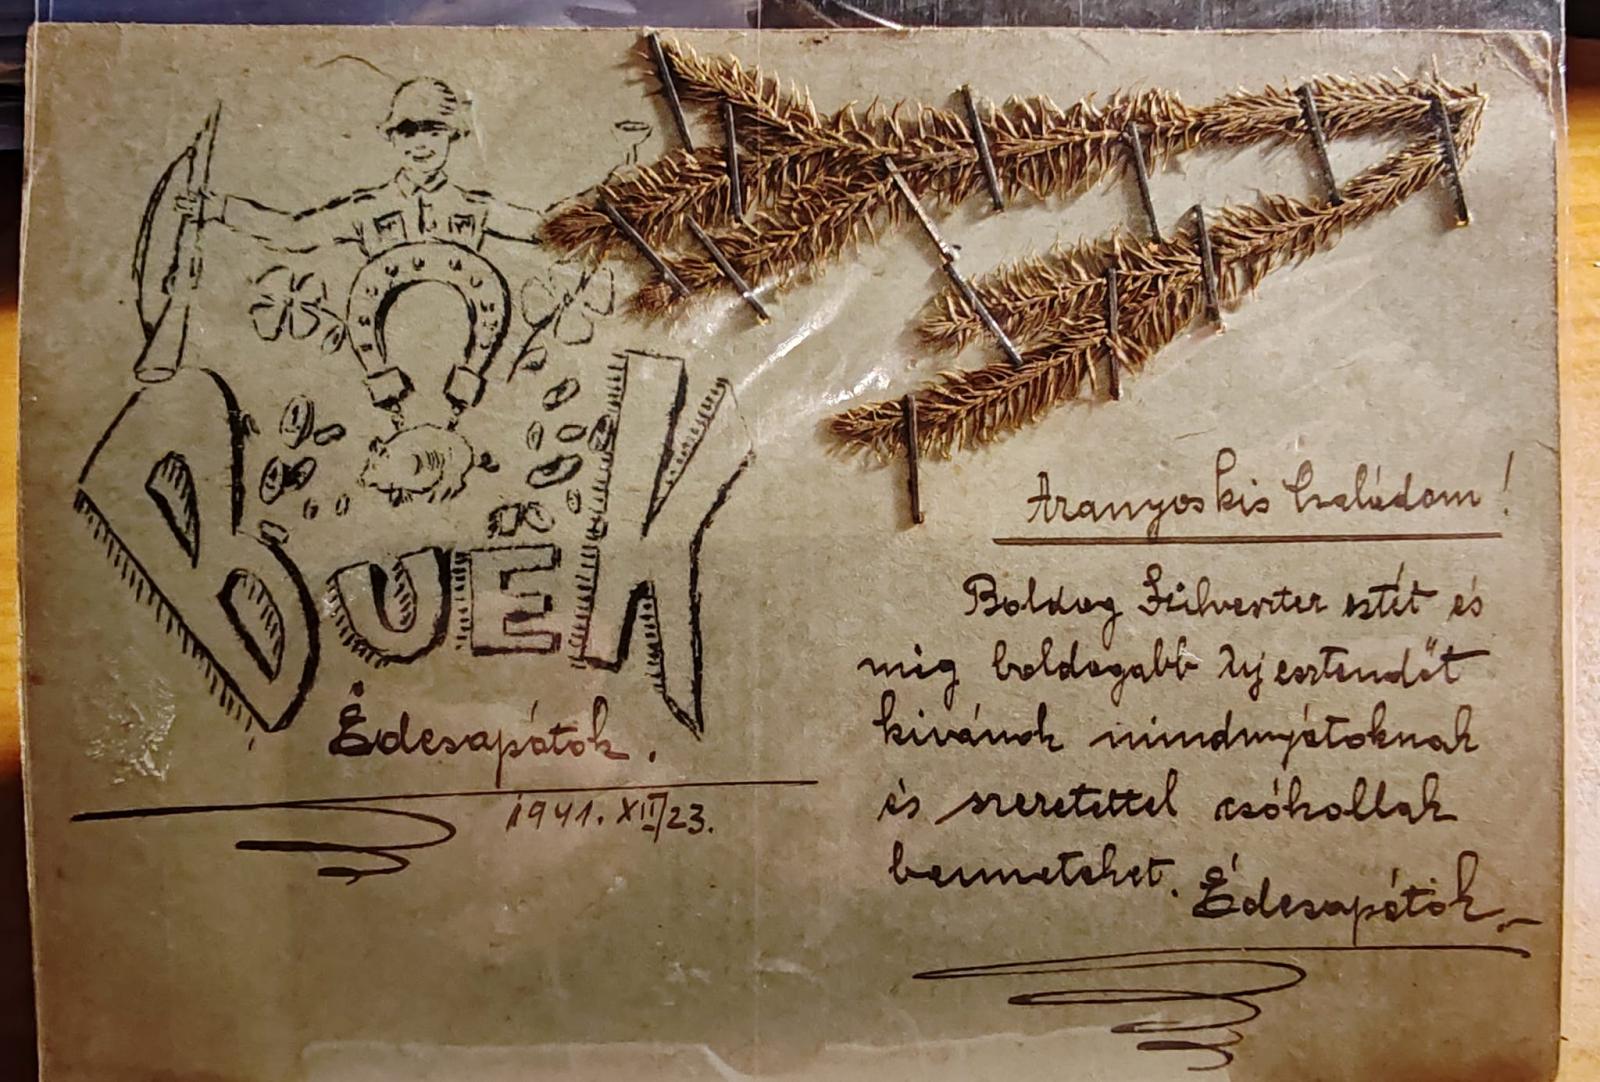 BUÉK
Édesapátok.
1941. XII/23.
Aranyos kis családom!
Boldog Szilveszter estét és
még boldogabb új esztendőt
kivánok mindnyájatoknak
és szeretettel csókollak
benneteket. Édesapátok.